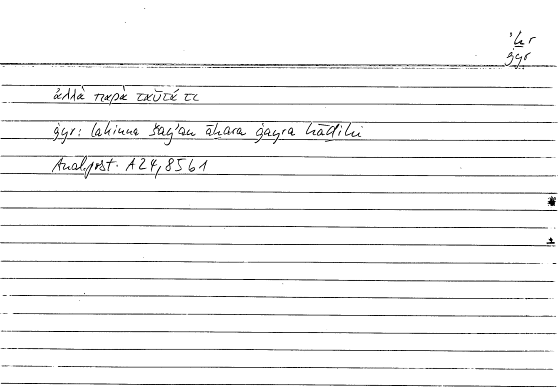 ʾḫr
ġyr
ἀλλὰ παρὰ ταῦτά τι
ġyr: lakinna šayʾan āḫara ġayra hāḏihi
Anal. post. A 24, 85b1